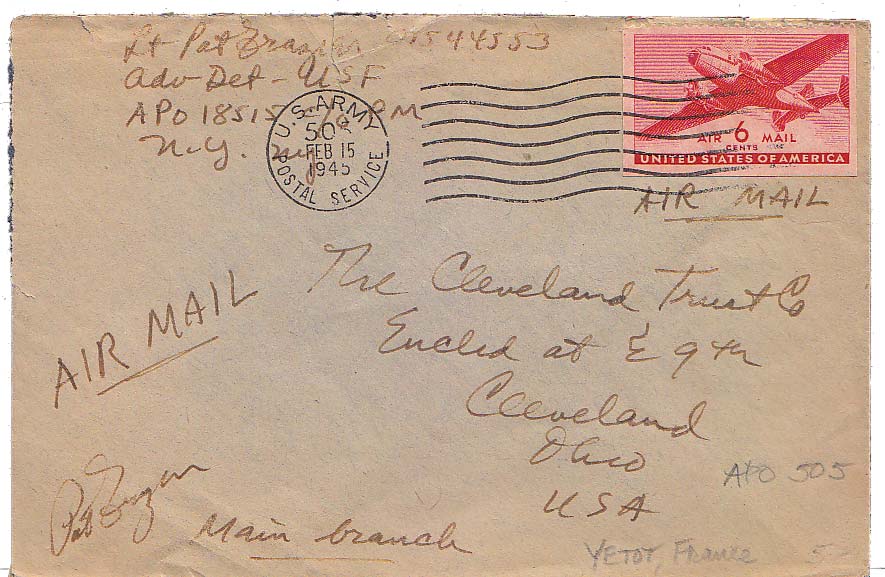 Lt Pat Frazier O1544553
Adv Det - USF
APO 18515 % PM
N.Y. N.Y.
U.S. ARMY
505
FEB 15
1945
POSTAL SERVICE
AIR 6 MAIL
CENTS
UNITED STATES OF AMERICA
AIR MAIL
AIR MAIL
The Cleveland Trust Co
Euclid at E 9th
Cleveland
Ohio
USA
APO 505
Pat Frazier
Main branch
YETOT, France
5-